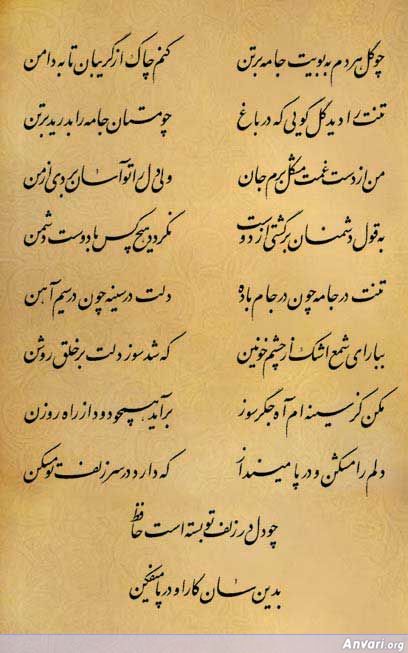 چو گل هر دم به بویت جامه بر تن کنم چاک از گریبان تا به دامن
تنت را دید گل گویی که در باغ چو مستان جامه را بدرید بر تن
من از دست غمت مشکل برم جان ولی دل را تو آسان بردی از من
به قول دشمنان برگشتی از دوست نگردد هیچ کس با دوست دشمن
تنت در جامه چون در جام باده دلت در سینه چون در سیم آهن
ببار ای شمع اشک از چشم خونین که شد سوز دلت بر خلق روشن
مکن کز سینه‌ام آه جگرسوز برآید همچو دود از راه روزن
دلم را مشکن و در پا مینداز که دارد در سر زلف تو مسکن
چو دل در زلف تو بسته است حافظ
بدین سان کار او در پا میفکن
Anvari.org